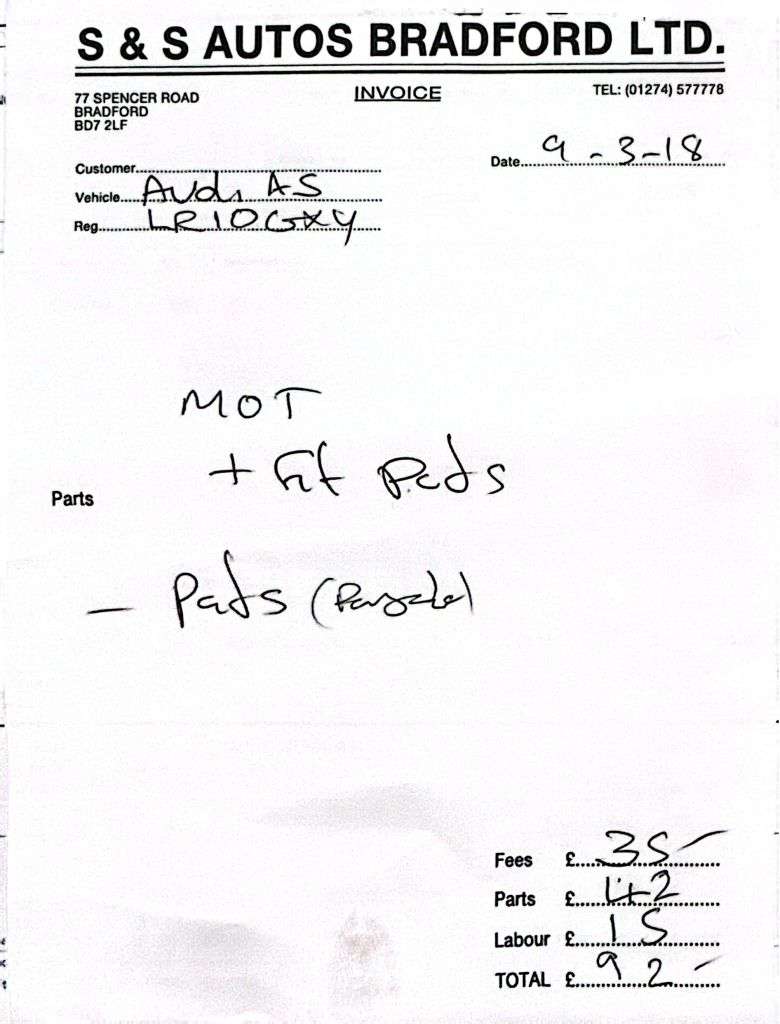 S & S AUTOS BRADFORD LTD.
77 SPENCER ROAD
BRADFORD
BD7 2LF
INVOICE
TEL: (01274) 577778
Customer
Date 9-3-18
Vehicle Audi A5
Reg LR10GXY
MOT
+ Fit Pads
Parts
- Pads
Fees £ 35-
Parts £ 42
Labour £ 15
TOTAL £ 92-